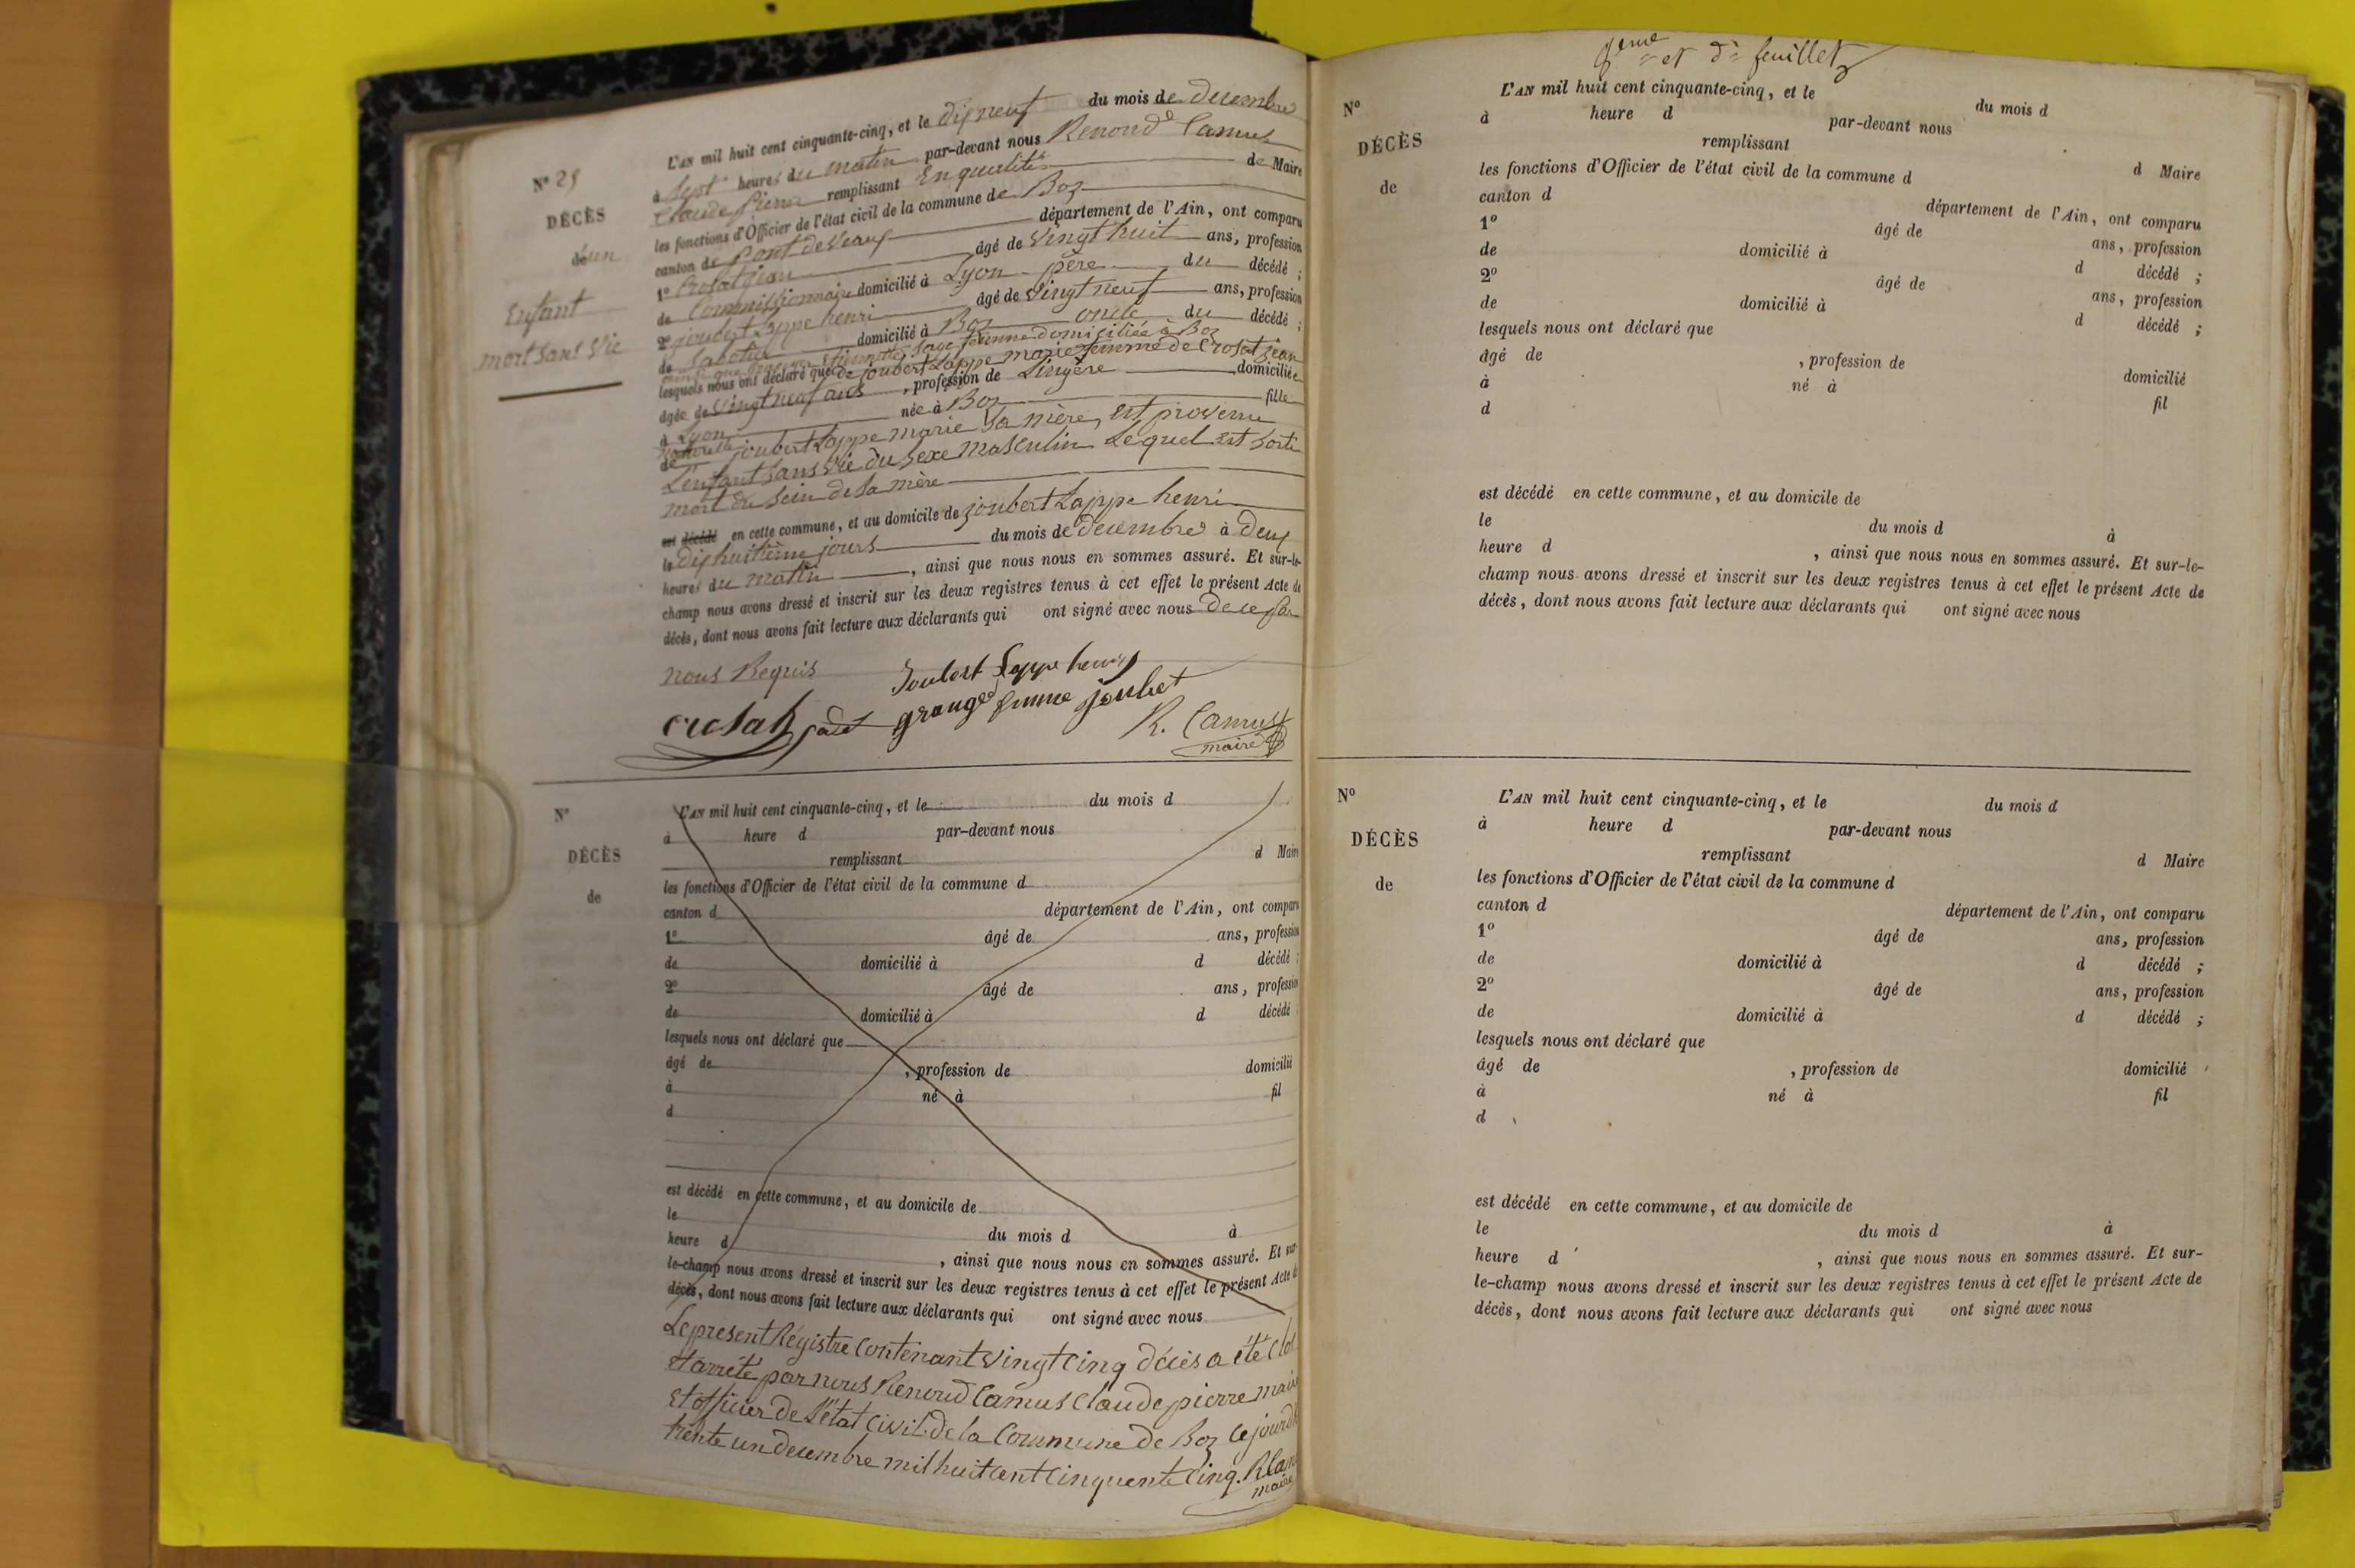 N° 25
DÉCÈS
d'un
Enfant
mort sans vie
L'AN mil huit cent cinquante-cinq, et le dix neuf du mois de decembre
à sept heures du matin par-devant nous Renoud Camus
Claude pierre remplissant En qualité de Maire
les fonctions d'Officier de l'état civil de la commune de Boz
canton de Pont de Vaux département de l'Ain, ont comparu
1° Crosat jean âgé de Vingt huit ans, profession
de Commissionnaire domicilié à Lyon père du décédé ;
2° joubert Lappe henri âgé de Vingt neuf ans, profession
de Sabotier domicilié à Boz oncle du décédé ;
ainsi que Etiennette Sage femme domiciliée à Boz
lesquels nous ont déclaré que de joubert Lappe marie femme de Crosat jean
âgée de Vingt neuf ans, profession de Lingère domiciliée
à Lyon née à Boz fille
naturelle
de joubert Lappe marie Sa mère, est provenu
L'enfant Sans Vie du Sexe masculin Lequel est Sorti
mort du Sein de Sa mère
est décédé en cette commune, et au domicile de joubert Lappe henri
le Dix huitième jours du mois de decembre à Deux
heures du matin, ainsi que nous nous en sommes assuré. Et sur-le-
champ nous avons dressé et inscrit sur les deux registres tenus à cet effet le présent Acte de
décès, dont nous avons fait lecture aux déclarants qui ont signé avec nous De ce par
nous Requis
Joubert Lappe henry
crosat grange femme joubert
R. Camus
maire
N°
DÉCÈS
de
L'AN mil huit cent cinquante-cinq, et le du mois d
à heure d par-devant nous
remplissant d Maire
les fonctions d'Officier de l'état civil de la commune d
canton d département de l'Ain, ont comparu
1° âgé de ans, profession
de domicilié à d décédé ;
2° âgé de ans, profession
de domicilié à d décédé
lesquels nous ont déclaré que
âgé de , profession de domicilié
à né à fil
d
est décédé en cette commune, et au domicile de
le du mois d à
heure d , ainsi que nous nous en sommes assuré. Et sur-
le-champ nous avons dressé et inscrit sur les deux registres tenus à cet effet le présent Acte de
décès, dont nous avons fait lecture aux déclarants qui ont signé avec nous
Le present Régistre Contenant Vingt Cinq décès a été Clos
et arrêté par nous Renoud Camus Claude pierre maire
Et officier de L'état Civil de la Commune de Boz Ce jourd'h
trente un decembre mil huit cent Cinquente Cinq. R Cam
maire
9eme et dr feuillet
N°
DÉCÈS
de
L'AN mil huit cent cinquante-cinq, et le du mois d
à heure d par-devant nous
remplissant d Maire
les fonctions d'Officier de l'état civil de la commune d
canton d département de l'Ain, ont comparu
1° âgé de ans, profession
de domicilié à d décédé ;
2° âgé de ans, profession
de domicilié à d décédé ;
lesquels nous ont déclaré que
âgé de , profession de domicilié
à né à fil
d
est décédé en cette commune, et au domicile de
le du mois d à
heure d , ainsi que nous nous en sommes assuré. Et sur-le-
champ nous avons dressé et inscrit sur les deux registres tenus à cet effet le présent Acte de
décès, dont nous avons fait lecture aux déclarants qui ont signé avec nous
N°
DÉCÈS
de
L'AN mil huit cent cinquante-cinq, et le du mois d
à heure d par-devant nous
remplissant d Maire
les fonctions d'Officier de l'état civil de la commune d
canton d département de l'Ain, ont comparu
1° âgé de ans, profession
de domicilié à d décédé ;
2° âgé de ans, profession
de domicilié à d décédé ;
lesquels nous ont déclaré que
âgé de , profession de domicilié
à né à fil
d
est décédé en cette commune, et au domicile de
le du mois d à
heure d , ainsi que nous nous en sommes assuré. Et sur-
le-champ nous avons dressé et inscrit sur les deux registres tenus à cet effet le présent Acte de
décès, dont nous avons fait lecture aux déclarants qui ont signé avec nous